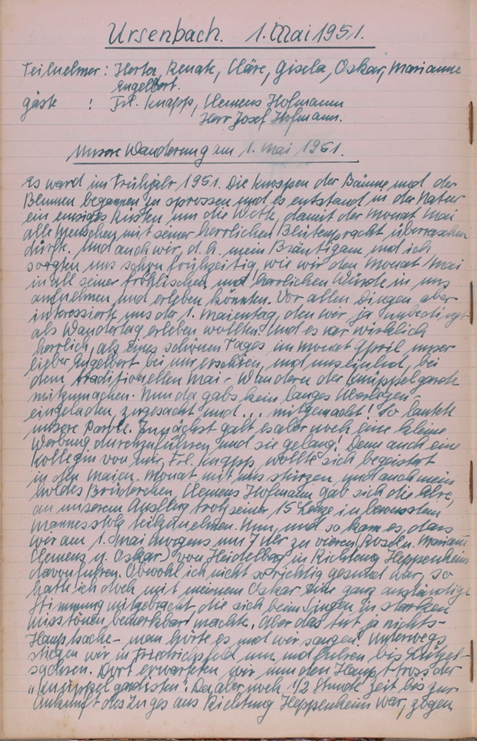 Ursenbach. 1. Mai 1951.
Teilnehmer: Herta, Renate, Cläre, Gisela, Oskar, Marianne
Engelbert.
Gäste : Frl. Knapp, Clemens Hofmann
Herr Josef Hofmann.
Unsere Wanderung am 1. Mai 1951.
Es ward im Frühjahr 1951. Die Knospen der Bäume und der
Blumen begannen zu sprossen und es entstand in der Natur
ein emsiges Rüsten um die Wette, damit der Monat Mai
alle Menschen mit seiner herrlichen Blütenpracht überraschen
dürfe. Und auch wir, d. h. mein Bräutigam und ich
sorgten uns schon frühzeitig, wie wir den Monat Mai
in all seiner fröhlichen und herrlichen Würde in uns
aufnehmen und erleben könnten. Vor allen Dingen aber
interessierte uns der 1. Maientag, den wir ja unbedingt
als Wandertag erleben wollten. Und es war wirklich
herrlich, als eines schönen Tages im Monat April unser
lieber Engelbert bei uns erschien, und uns einlud, bei
dem traditionellen Mai-Wandern der Knüppelgarde
mitzumachen. Nun da gabs kein langes Überlegen
eingeladen, zugesacht und ... mitgemacht! So lautete
unsere Parole. Zunächst galt es aber noch eine kleine
Werbung durchzuführen, und sie gelang! Denn auch eine
Kollegin von mir, Frl. Knapp, wollte sich begeistert
in den Maien-Monat mit uns stürzen, und auch mein
holdes Brüderchen, Clemens Hofmann gab sich die Ehre,
an unserem Ausflug trotz seiner 15 Lenze in bewusstem
Mannesstolz teilzunehmen. Nun, und so kam es, dass
wir am 1. Mai morgens um 7 Uhr zu vieren, Roseln, Mariann
Clemens u. Oskar, von Heidelberg in Richtung Heppenheim
davonfuhren. Obwohl ich nicht so richtig gesund war, so
hatte ich doch mit meinem Oskar eine ganz anständige
Stimmung mitgebracht, die sich beim Singen zu starken
Misstönen bemerkbar machte. Aber das tut ja nichts-
Hauptsache - man hörte es und wir sangen. Unterwegs
stiegen wir in Friedrichsfeld um und fuhren bis Lützel-
sachsen. Dort erwarteten wir nun den Haupttross der
"Knüppelgardisten". Da aber noch 1/2 Stunde Zeit bis zur
Ankunft des Zuges aus Richtung Heppenheim war, zogen